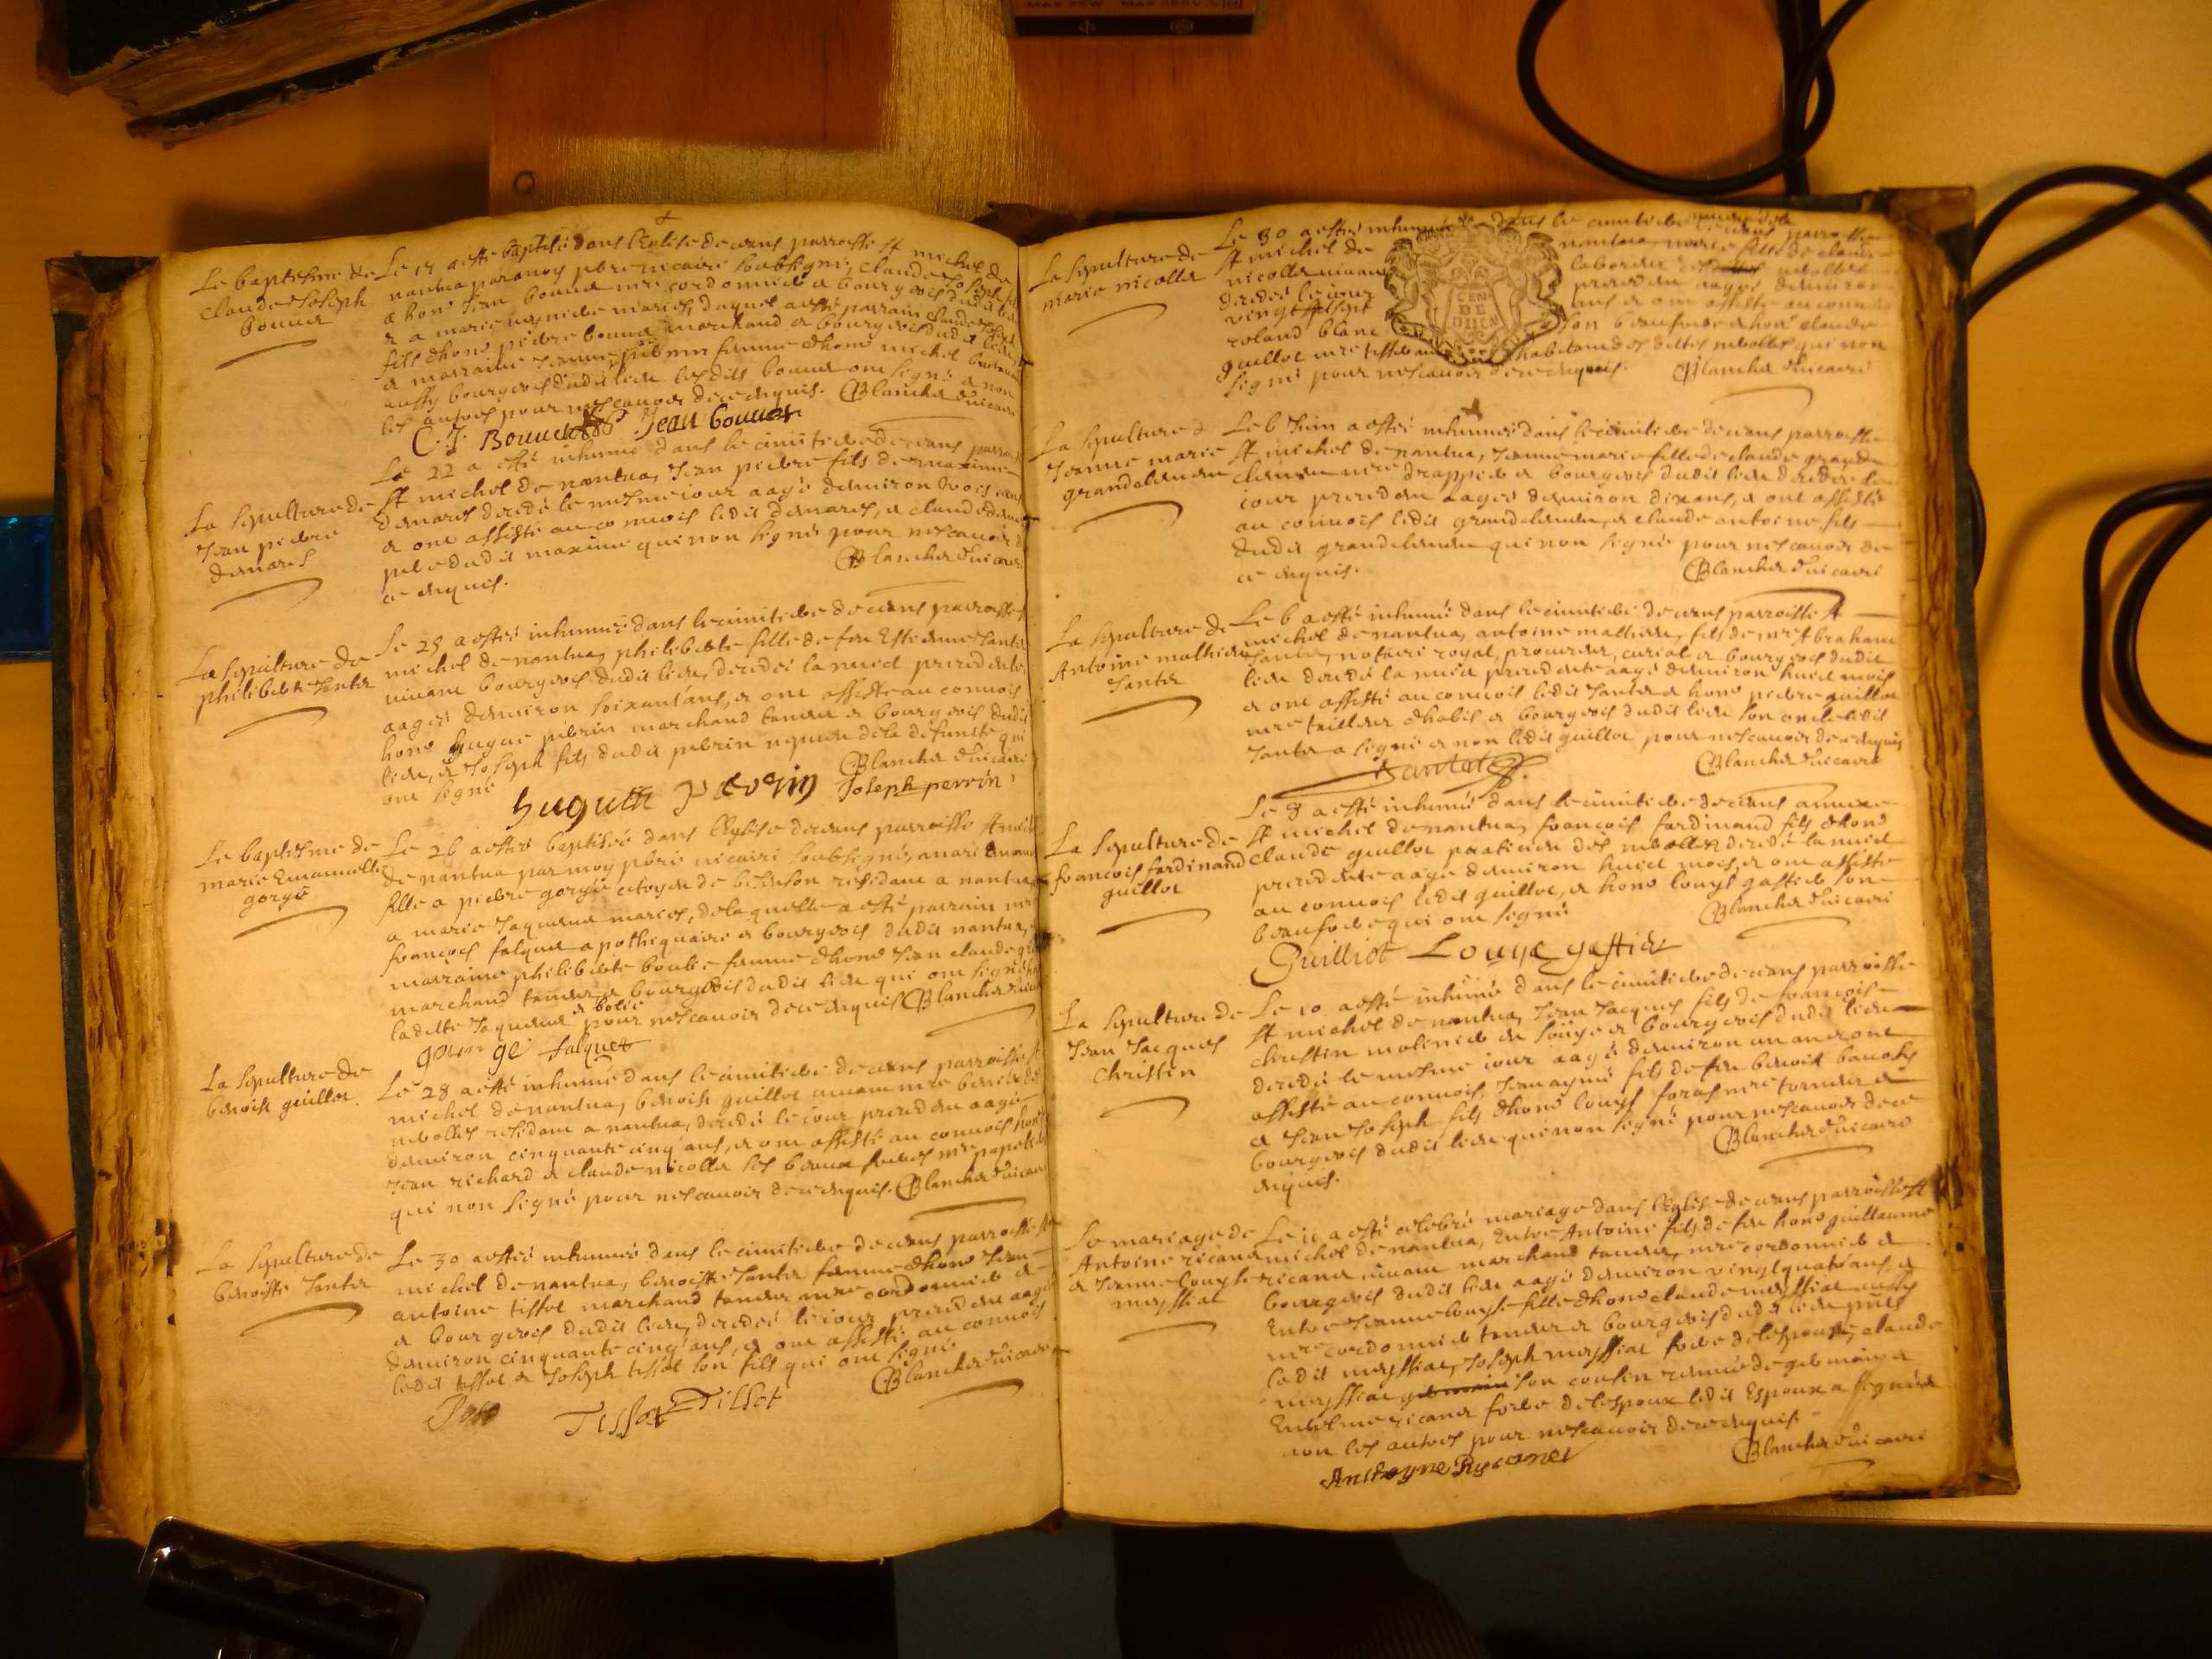 Le baptesme de
Claude Joseph
bouuet
Le 17 a esté baptisé dans l'Eglise de ceans parroisse St michel de
nantua par moy pbre vicaire soubsigné, Claude Joseph fils
a hono Jean bouuet mre cordonnier et bourgeois dudit lieu
et a marie mariés, duquel a esté parrain claude Joseph
fils d'hono pierre bouuet marchand et bourgeois dudit lieu
et marraine Jeanne femme d'hono michel
aussy bourgeois dudit lieu lesdits bouuet ont signé et non
les autres pour ne scauoir de ce enquis. Blanchet vicaire
C. J. Bouuet Jean bouuet
La sepulture de
Jean pierre
demares
Le 22 a esté inhumé dans le cimitiere de ceans parroisse
St michel de nantua, Jean pierre fils de maxime
demares decedé le mesme iour aagé denuiron trois ans
et ont assisté au conuois ledit demares, et claude
pere dudit maxime qui non signé pour ne scauoir de
ce enquis. Blanchet vicaire
La sepulture de
philiberte Jantet
Le 25 a estéé inhumée dans le cimitiere de ceans parroisse St
michel de nantua, philiberte fille de feu Estienne Jantet
viuant bourgeois dudit lieu, decedéé la nuict precedente
aagéé denuiron soixant'ans, et ont assisté au conuois
hono hugue perrin marchand tanneur et bourgeois dudit
lieu, et Joseph fils dudit perrin nepueu de la defuncte qui
ont signé Blanchet vicaire
hugutte perrin Joseph perrin
Le baptesme de
marie Emanuelle
gorgé
Le 26 a estéé baptiséé dans l'Eglise de ceans parroisse St michel
de nantua par moy pbre vicaire soubsigné, marie Emanuelle
fille a pierre gorgé citoyen de besanson residant a nantua
et a marie Jaquenet mariés, de laquelle a esté parrain mre
francois falquet apothiquaire et bourgeois dudit nantua, et
marraine philiberte bolie femme d'hono Jean claude
marchand tanneur et bourgeois dudit lieu qui ont signé non
ladite Jaquenet et bolie pour ne scauoir de ce enquis Blanchet vicaire
gorge falquet
La sepulture de
benoist guillot
Le 28 a esté inhumé dans le cimitiere de ceans parroisse St
michel de nantua, benoist guillot viuant mre
residant a nantua, decedé le iour precedent aagé
denuiron cinquante cinq ans, et ont assisté au conuois hono
Jean richard et claude nicollet ses beaux freres mre papetiers
qui non signé pour ne scauoir de ce enquis. Blanchet vicaire
La sepulture de
benoiste Jantet
Le 30 a estéé inhumée dans le cimitiere de ceans parroisse St
michel de nantua, benoiste Jantet femme d'hono Jean
antoine tissot marchand tanneur mre cordonnier et
et bourgeois dudit lieu, decedéé le iour precedent aagéé
denuiron cinquante cinq ans, et ont assisté au conuois
ledit tissot et Joseph tissot son fils qui ont signé
Blanchet vicaire
Tissot Tissot
La sepulture de
marie nicollet
Le 30 a estéé inhumée dans le cimitiere de ceans parroisse
St michel de nantua, marie fille de claude
nicollet viuant laboureur
decedéé le iour precedent aagéé denuiron
vingt sept ans et ont assisté au conuois
roland blanc son beaufrere et hono claude
guillot mre tisserand habitant qui non
signé pour ne scauoir de ce enquis. Blanchet vicaire
GEN
DE
DIJON
La sepulture de
Jeanne marie
grandclement
Le 6 Juin a estéé inhumée dans le cimitiere de ceans parroisse
St michel de nantua, Jeanne marie fille de claude grand
clement mre drappier et bourgeois dudit lieu decedéé le
iour precedent aagéé denuiron dix ans, et ont assisté
au conuois ledit grandclement, et claude antoine fils
dudit grandclement qui non signé pour ne scauoir de
ce enquis. Blanchet vicaire
La sepulture de
Antoine mathieu
Jantet
Le 6 a esté inhumé dans le cimitiere de ceans parroisse St
michel de nantua, antoine mathieu, fils de mre Abraham
Jantet, notaire royal, procureur, curial et bourgeois dudit
lieu decedé la nuict precedente aagé denuiron huict mois
et ont assisté au conuois ledit Jantet et hono pierre guillot
mre tailleur d'habis et bourgeois dudit lieu son oncle ledit
Jantet a signé et non ledit guillot pour ne scauoir de ce enquis
Jantet Blanchet vicaire
La sepulture de
francois ferdinand
guillot
Le 8 a esté inhumé dans le cimitiere de ceans annexe
St michel de nantua, francois ferdinand fils d'hono
claude guillot praticien des decedé la nuict
precedente aagé denuiron huict mois, et ont assisté
au conuois ledit guillot, et hono louys gastier son
beaufrere qui ont signé Blanchet vicaire
Guilliot Louys gastier
La sepulture de
Jean Jacques
Christin
Le 10 a esté inhumé dans le cimitiere de ceans parroisse
St michel de nantua, Jean Jacques fils de francois
christin molinier en soÿe et bourgeois dudit lieu
decedé le mesme iour aagé denuiron un an et ont
assisté au conuois, Jean aymé fils de feu benoist
et Jean Joseph fils d'hono louys foras mre torneur et
bourgeois dudit lieu qui non signé pour ne scauoir de ce
enquis. Blanchet vicaire
Le mariage de
Antoine ricanet
et Jeanne louyse
meyssiat
Le 11 a esté celebré mariage dans l'Eglise de ceans parroisse St
michel de nantua, Entre Antoine fils de feu hono guillaume
ricanet viuant marchand tanneur, mre cordonnier et
bourgeois dudit lieu aagé denuiron vingt quatr'ans, et
Entre Jeanne louyse fille d'hono claude meyssiat aussy
mre cordonnier tanneur et bourgeois dudit lieu pnts
ledit meyssiat, Joseph meyssiat frere de lespouse, claude
meyssiat son cousin remué de germain, et
Entelme ricanet frere de lespoux ledit Espoux a signé et
non les autres pour ne scauoir de ce enquis.
Blanchet vicaire
Anthoyne Ryccanet